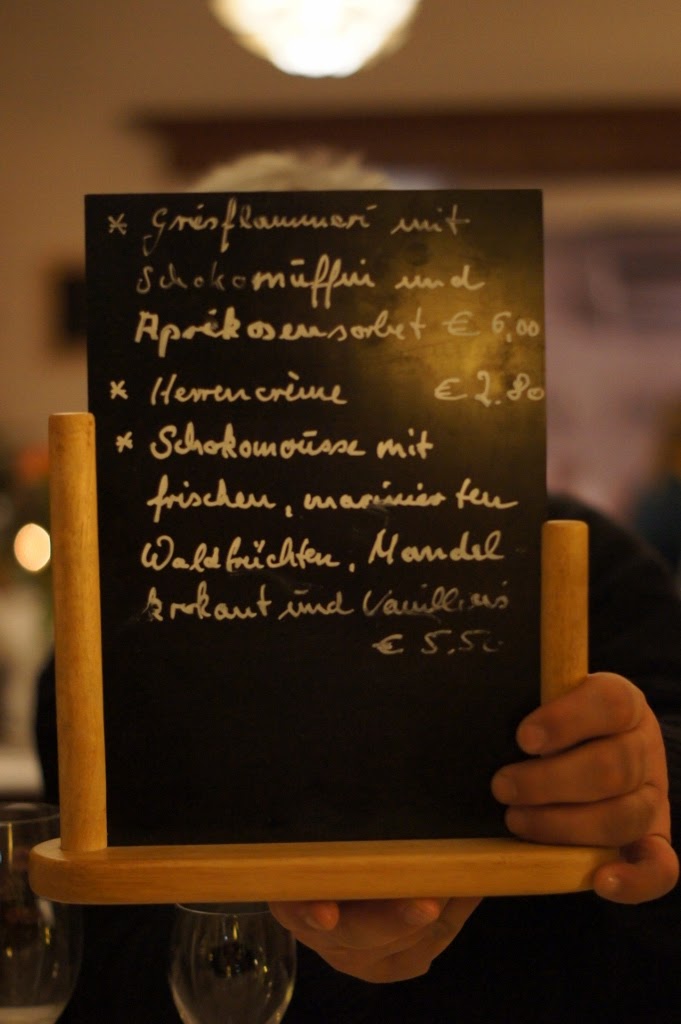 * Griesflammeri mit
Schokomüffin und
Aprikosensorbet € 6,00
* Herrencrème € 2.80
* Schokomousse mit
frischen, marinierten
Waldfrüchten, Mandel
krokant und Vanilleeis
€ 5.50